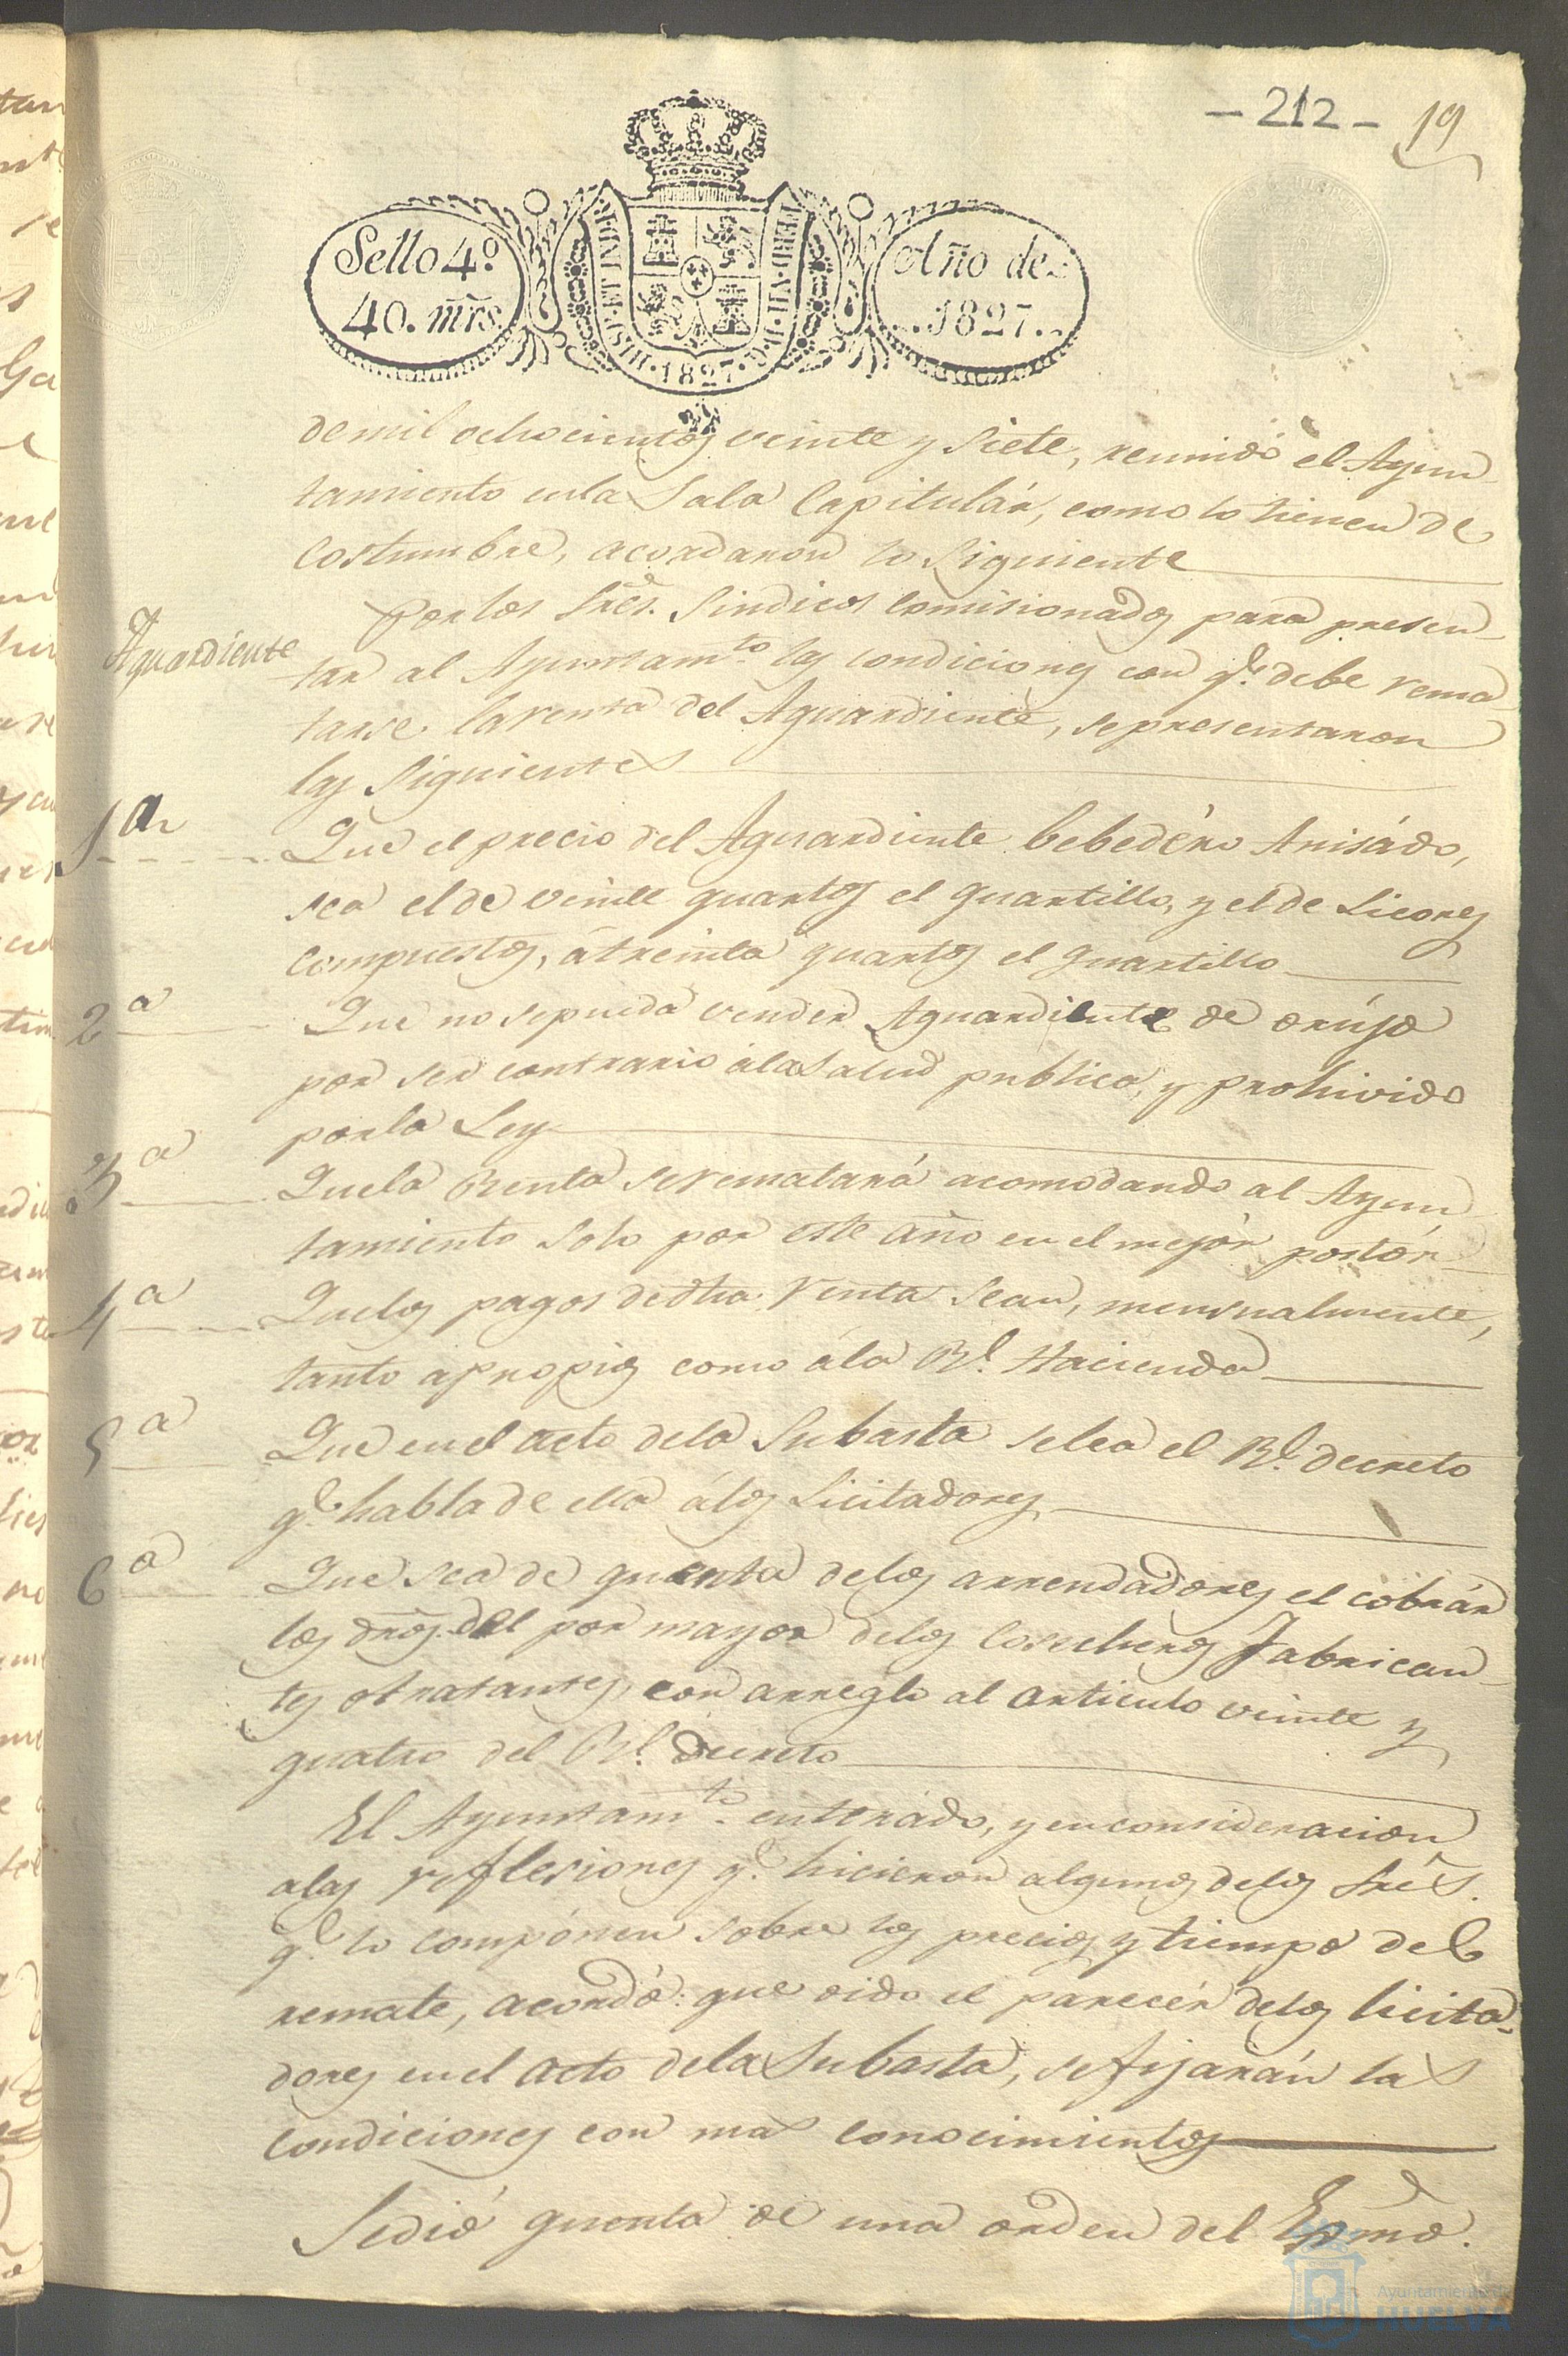 - 212 - 19
Sello 4.º
40. mrs.
HISP. ET IND. R.
FERD. VII. D. G.
.1827.
Año de
1827.
de mil ochocientos veinte y siete, reunido el Ayun
tamiento en la Sala Capitulár, como lo tienen de
costumbre, acordaron lo siguiente
Aguardiente
Por los Sres. Sindicos comisionados para presen
tar al Ayuntamto. las condiciones con qe. debe rema
tarse la renta del Aguardiente, se presentaron
las siguientes
1a
Que el precio del Aguardiente bebedéro Anisádo,
sea el de veinte quartos el quartillo, y el de Licores
compuestos, á treinta quartos el quartillo
2a
Que no se pueda vender Aguardiente de orújo
por ser contrario á la salud publica, y prohivido
por la Ley
3a
Que la Renta se rematará acomodando al Ayun
tamiento solo por este año en el mejór postór
4a
Que los pagos de dha. renta sean, mensualmente,
tanto a propios como á la Rl. Hacienda
5a
Que en el acto de la Subasta se lea el Rl. decreto
qe. habla de ella á los Licitadores
6a
Que sea de quenta de los arrendadores el cobrár
los dros. del por mayor de los Cosecheros Fabrican
tes o tratantes, con arreglo al articulo veinte y
quatro del Rl. decreto
El Ayuntamto. enterádo, y en consideracion
a las reflesiones qe. hicieron algunos de los Sres.
qe. lo compónen sobre los precios y tiempo del
remate, acordó: que oido el parecér de los licita-
dores en el acto de la Subasta, se fijarán las
condiciones con mas conocimientos
Se dió quenta de una orden del Exmo.
Ayuntamiento de
HUELVA